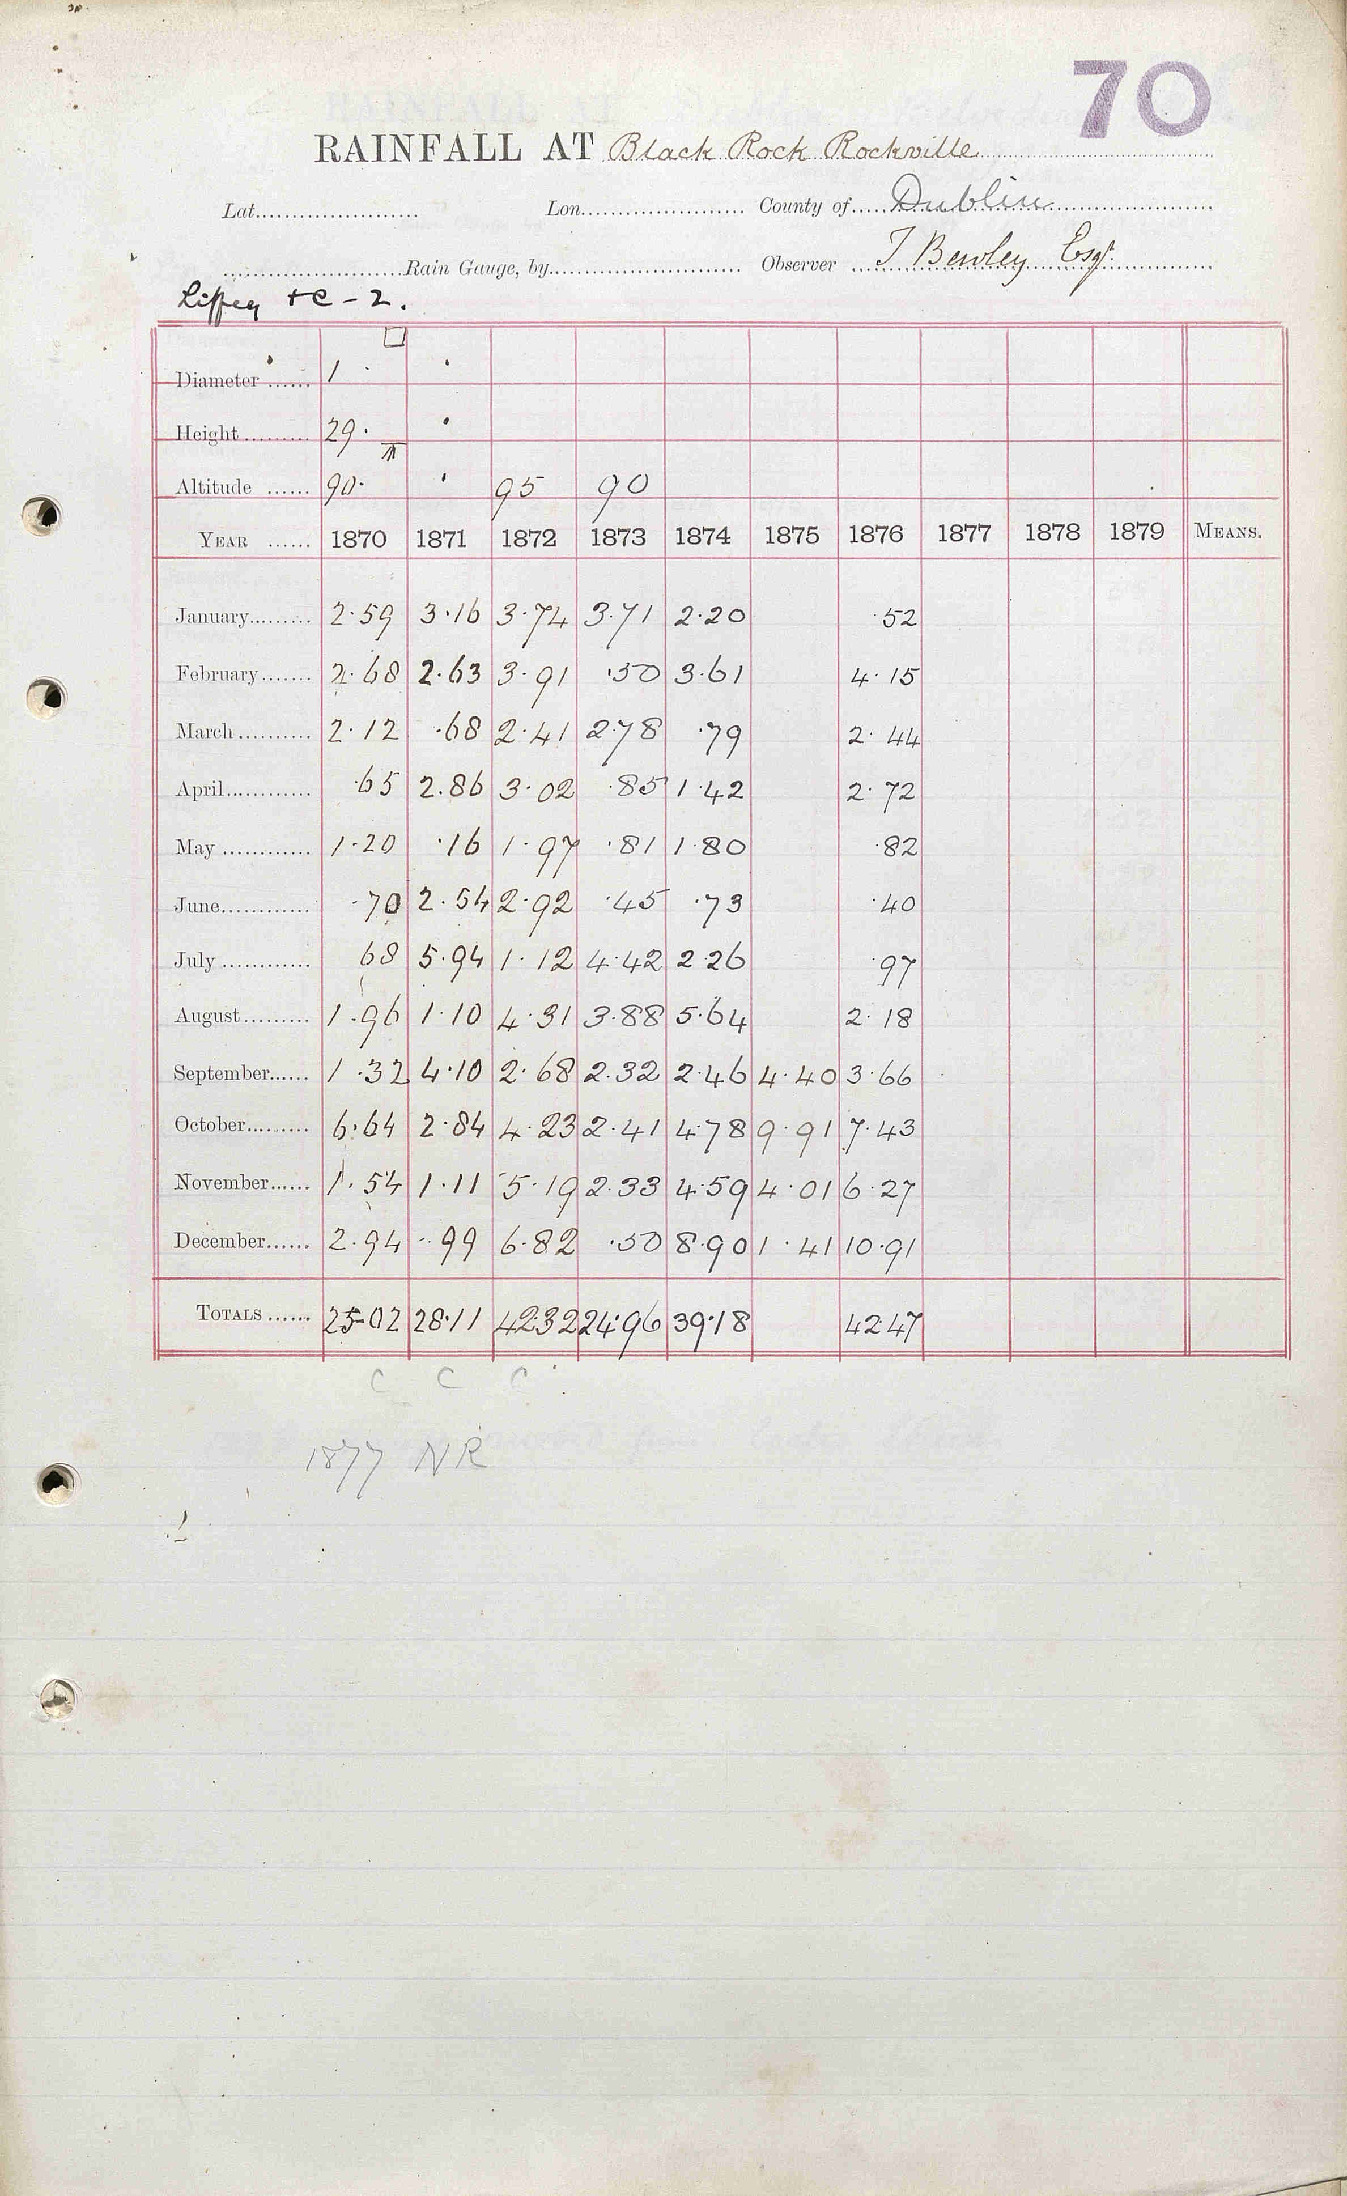 70
RAINFALL AT Black Rock Rockville
Lat. Lon. County of Dublin
Rain Gauge, by Observer T Bewley Esqr.
Liffey +c - 2.
Diameter 1
Height 29.
Altitude 90. 95 90
YEAR 1870 1871 1872 1873 1874 1875 1876 1877 1878 1879 MEANS.
January 2.59 3.16 3.74 3.71 2.20 .52
February 2.68 2.63 3.91 .50 3.61 4.15
March 2.12 .68 2.41 2.78 .79 2.44
April .65 2.86 3.02 .85 1.42 2.72
May 1.20 .16 1.97 .81 1.80 .82
June .70 2.54 2.92 .45 .73 .40
July 68 5.94 1.12 4.42 2.26 .97
August 1.96 1.10 4.31 3.88 5.64 2.18
September 1.32 4.10 2.68 2.32 2.46 4.40 3.66
October 6.64 2.84 4.23 2.41 4.78 9.91 7.43
November 1.54 1.11 5.19 2.33 4.59 4.01 6.27
December 2.94 .99 6.82 .50 8.90 1.41 10.91
TOTALS 25.02 28.11 42.32 24.96 39.18 42.47
C C C
1877 NR